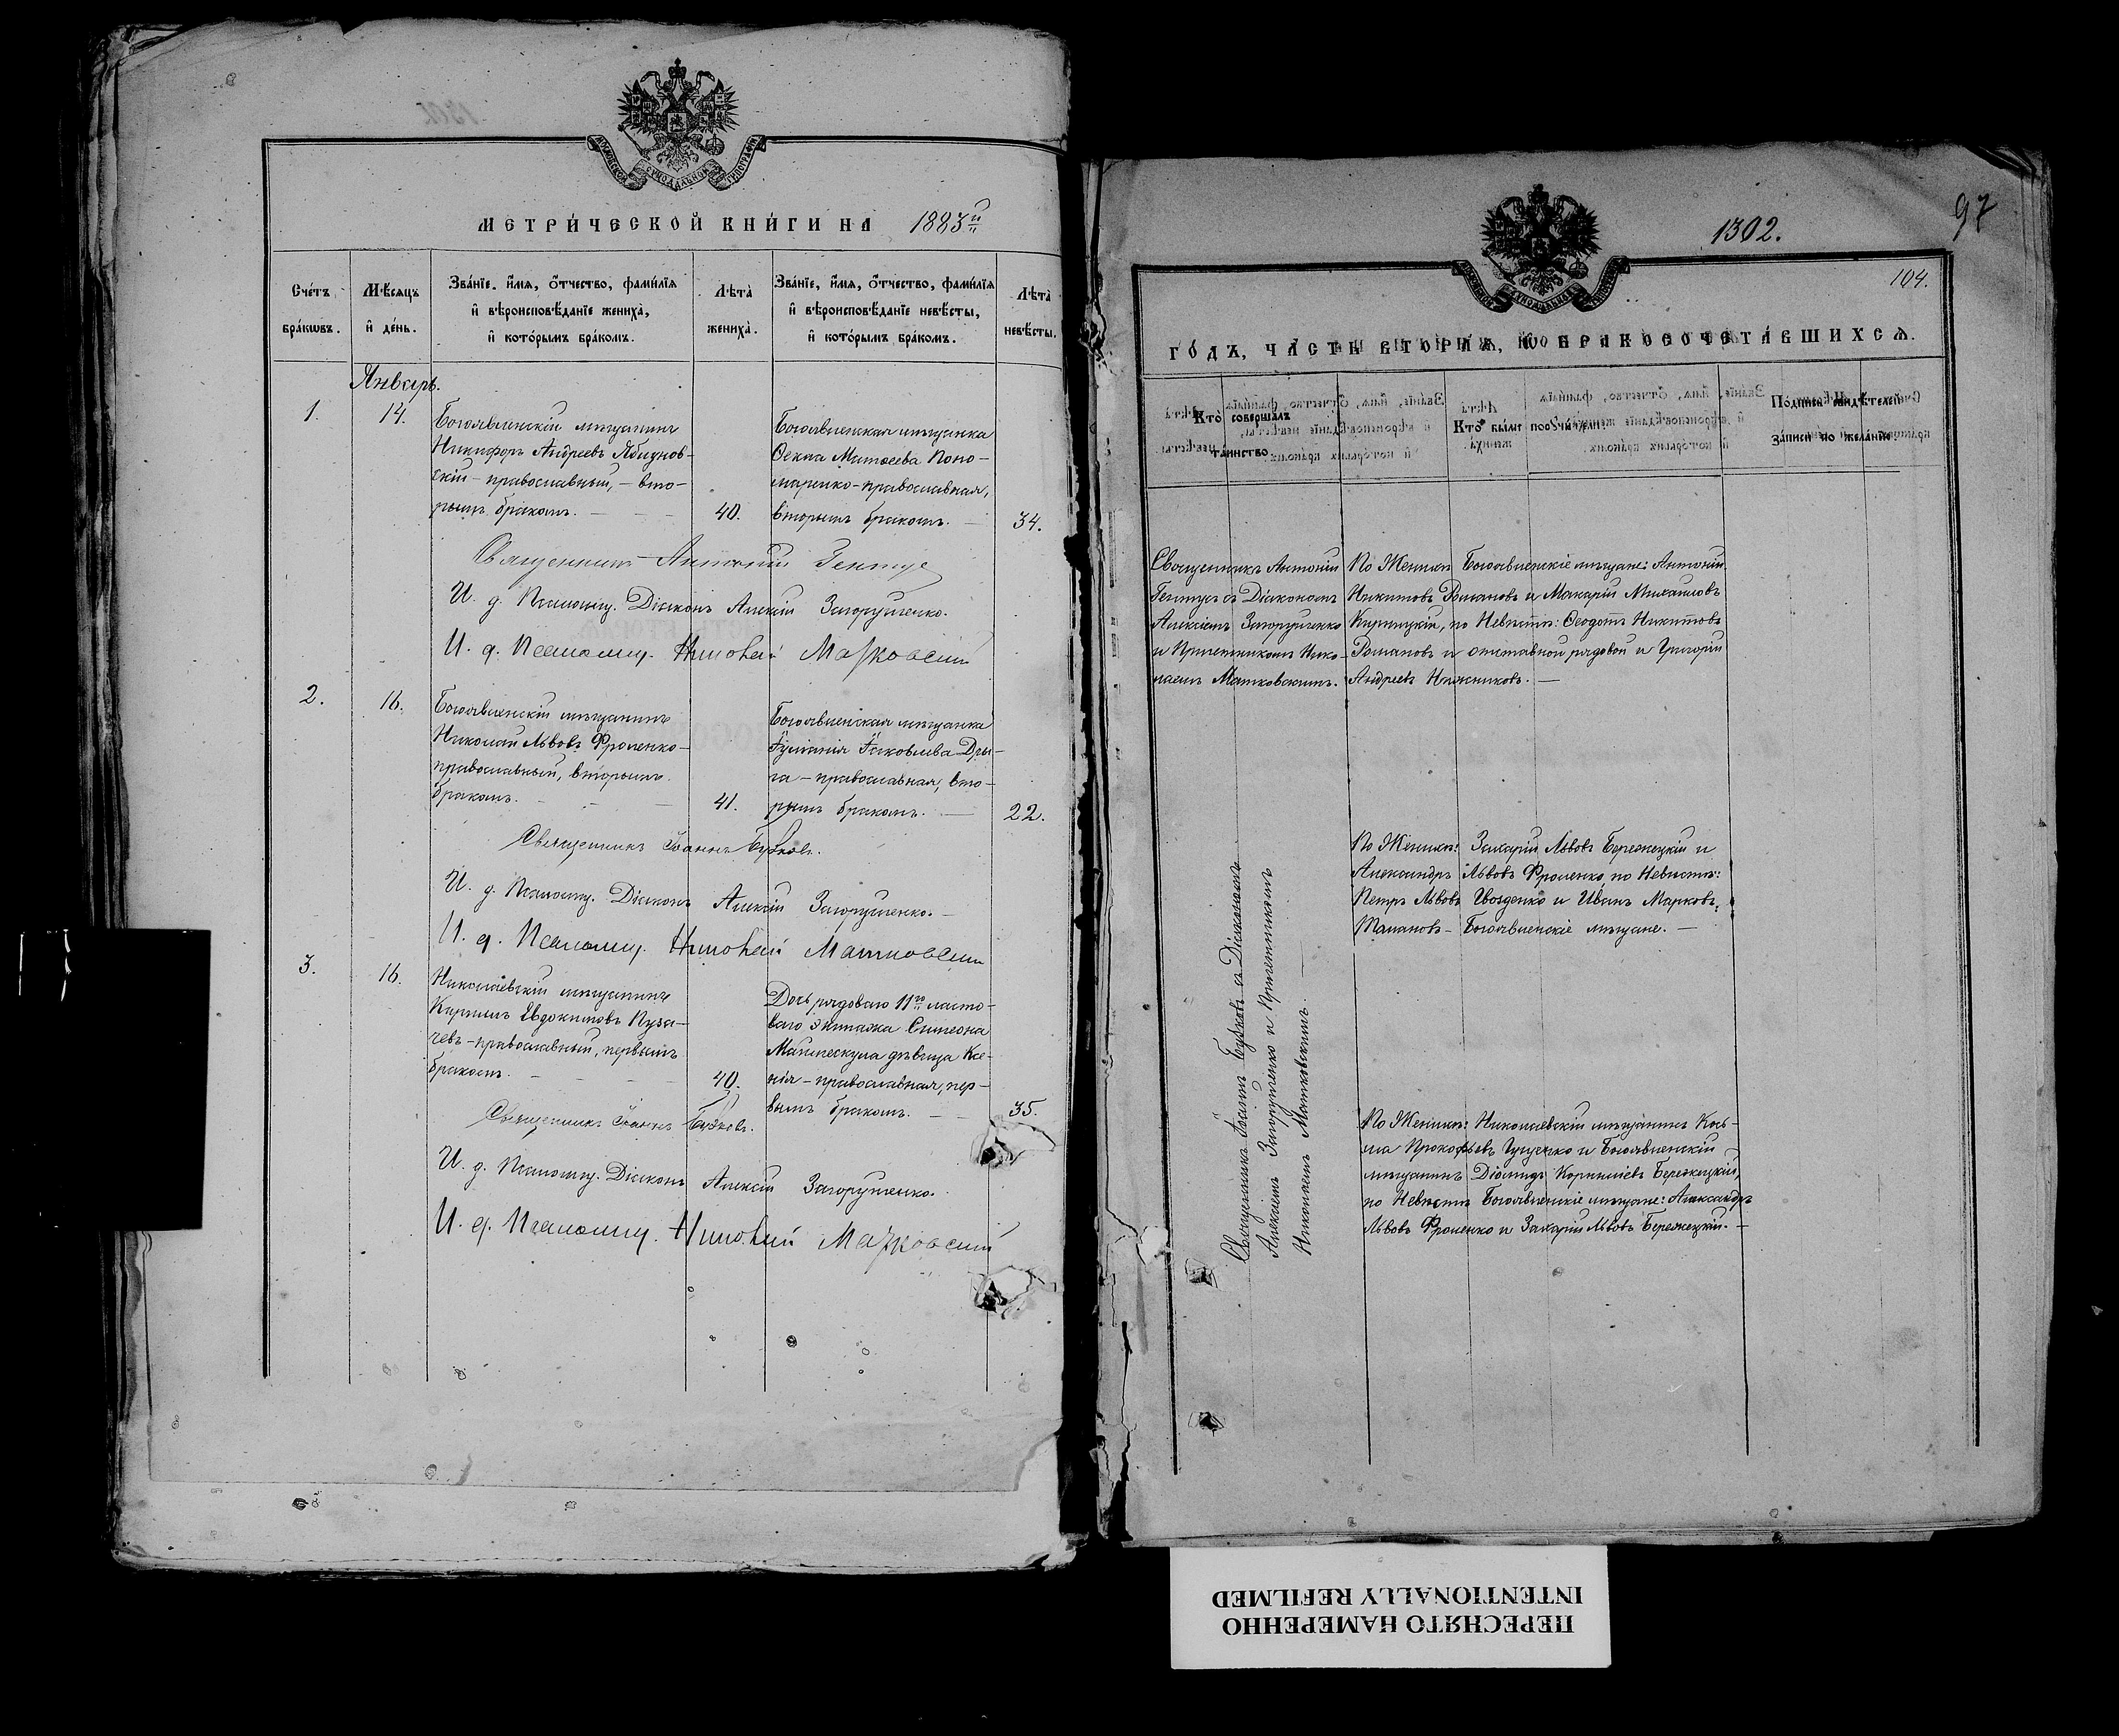 МОСКОВСКОЙ СѴНОДАЛЬНОЙ ТИПОГРАФІИ
МЕТРИ́ЧЕСКОЙ КНИ́ГИ НА 1883й
Сче́тъ бра́кωвъ.
Мѣ́сяцъ и҆ де́нь.
Зва́нїе, и҆́мѧ, ѻ҆́тчество, фами́лїѧ
и҆ вѣроисповѣ́данїе жениха̀,
и҆ кото́рымъ бра́комъ.
Лѣ́та̀
жениха̀.
Зва́нїе, и҆́мѧ, ѻ҆́тчество, фами́лїѧ
и҆ вѣроисповѣ́данїе невѣ́сты,
и҆ кото́рымъ бра́комъ.
Лѣ́та̀
невѣ́сты.
Январь.
1.
14.
Богоявленскій мѣщанинъ
Никифоръ Андреевъ
скій - православный, - вто-
рымъ бракомъ. -
40.
Богоявленская мѣщанка
Матѳеева Поно-
маренко - православная,
вторымъ бракомъ. -
34.
Священникъ Антоній Гентус
И. д. Псаломщ. Діаконъ Алексій Загоруйченко.
И. д. Псаломщ. Николай Матковскій
2.
16.
Богоявленскій мѣщанинъ
Николай Львовъ Фроленко -
православный, вторымъ
бракомъ. -
41.
Богоявленская мѣщанка
Іуліанія Іаковлева Дры-
га - православная, вто-
рымъ бракомъ. -
22.
Священникъ Іоаннъ
И. д. Псаломщ. Діаконъ Алексій Загоруйченко. -
И. д. Псаломщ. Николай Матковскій
3.
16.
Николаевскій мѣщанинъ
Евдокимовъ Пуза-
чевъ - православный, первымъ
бракомъ. -
40.
Дочь рядоваго 11го ласто-
ваго экипажа Симеона
дѣвица Ксе-
нія - православная, пер-
вымъ бракомъ. -
35.
Священникъ Іоаннъ
И. д. Псаломщ. Діаконъ Алексій Загоруйченко.
И. д. Псаломщ. Николай Матковскій
1302.
97
104.
МОСКОВСКОЙ СѴНОДАЛЬНОЙ ТИПОГРАФІИ
ГО́ДЪ, ЧА́СТЬ ВТОРА́Ѧ, Ѡ҆ БРАКОСОЧЕТА́ВШИХСѦ.
Кто̀ соверша́лъ
та́инство.
Кто̀ бы́ли пор​учи́тели.
По́дпись свидѣ́телей
за́писи по жела́нїю.
Священникъ Антоній
Гентусъ съ Діакономъ
Алексіемъ Загоруйченко
и Причетникомъ Нико-
лаемъ Матковскимъ.
По Женихѣ: Богоявленскіе мѣщане: Антоній
Никитовъ Романовъ и Макарій Михаиловъ
по Невѣстѣ: Ѳеодотъ Никитовъ
Романовъ и отставной рядовой и Григорій
Андреевъ
Священникъ Іоаннъ съ Діакономъ
Алексіемъ Загоруйченко и Причетникомъ
Николаемъ Матковскимъ. -
По Женихѣ: Захарій Львовъ Бережецкій и
Александръ Львовъ Фроленко, по Невѣстѣ:
Петръ Львовъ Гвозденко и Иванъ Марковъ
Богоявленскіе мѣщане. -
По Женихѣ: Николаевскій мѣщанинъ Кось-
ма Прокофьевъ и Богоявленскій
мѣщанинъ Діомидъ Корниліевъ Бережецкій,
по Невѣстѣ Богоявленскіе мѣщане: Александръ
Львовъ Фроленко и Захарій Львовъ Бережецкій. -
ПЕРЕСНЯТО НАМЕРЕННО
INTENTIONALLY REFILMED